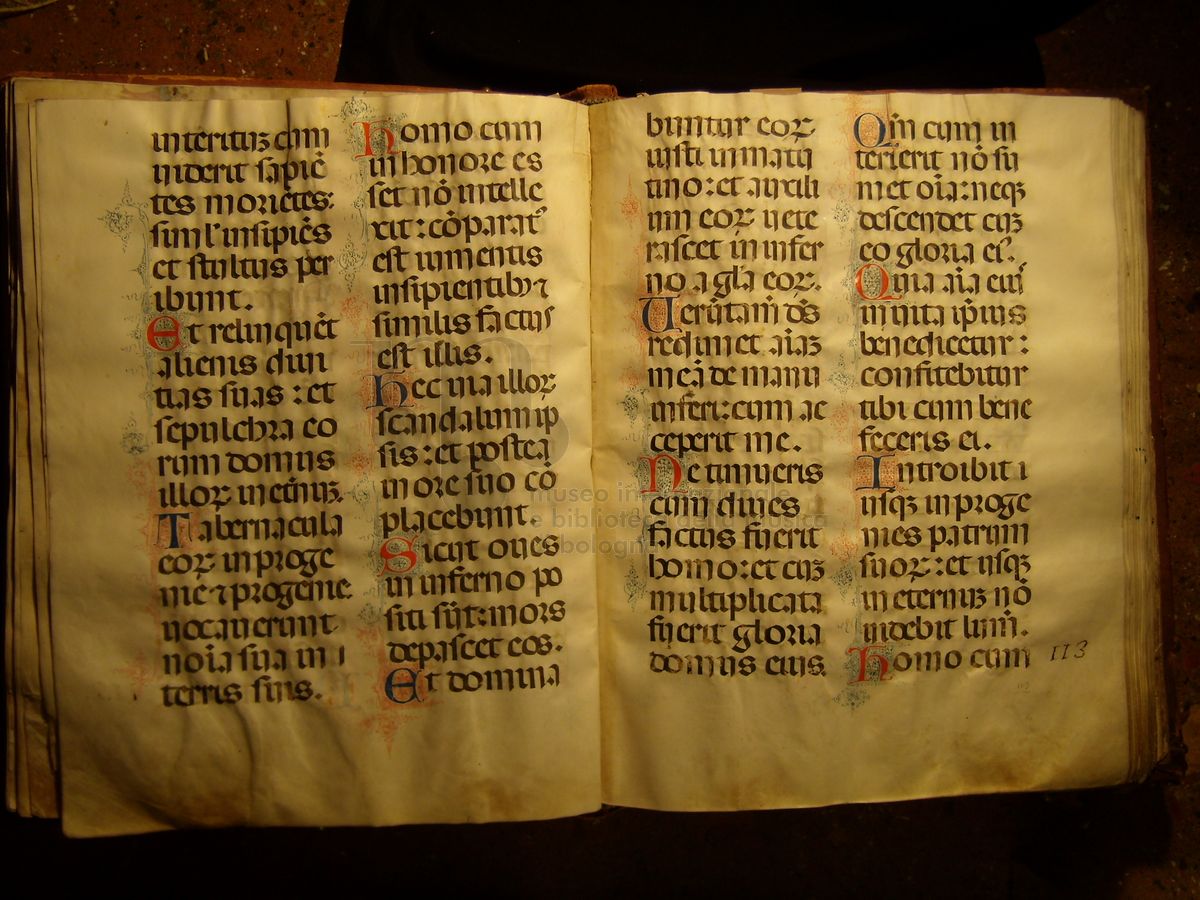 interituʒ cum
uiderit sapiē
tes moriētes:
simĺ insipiēs
et stultus per
ibunt.
Et relinquēt
alienis diui
tias suas : et
sepulchra eo
rum domus
illoꝝ in et̄nuʒ.
Tabernacula
eoꝝ in proge
nie ⁊ progenie
uocauerunt
noīa sua in
terris suis.
Homo cum
in honore es
set nō intelle
xit : cōparat᾽
est iumentis
insipientibꝫ ⁊
similis factus
est illis.
Hec uia illoꝝ
scandalum ip
sis : et postea
in ore suo cō
placebunt.
Sicut oues
in inferno po
siti sūt: mors
depascet eos.
Et domina
buntur eoꝝ
iusti in matu
tino : et auxili
um eoꝝ uete
rascet in infer
no a gl̄a eoꝝ.
Uerūtam̄ d̄s
redimet aīaʒ
meā de manu
inferi : cum ac
ceperit me.
Ne timueris
cum diues
factus fuerit
homo : et cuʒ
multiplicata
fuerit gloria
domus eius.
Qm̄ cum in
terierit nō su
met oīa : neqꝫ
descendet cuʒ
eo gloria ei᾽.
Quia aīa eiu᾽
in uita ip̄ius
benedicetur :
confitebitur
tibi cum bene
feceris ei.
Introibit u
usqꝫ in proge
nies patrum
suoꝝ : et usqꝫ
in eternuʒ nō
uidebit lum̄.
Homo cum
113
museo internazionale
e biblioteca della musica
bologna